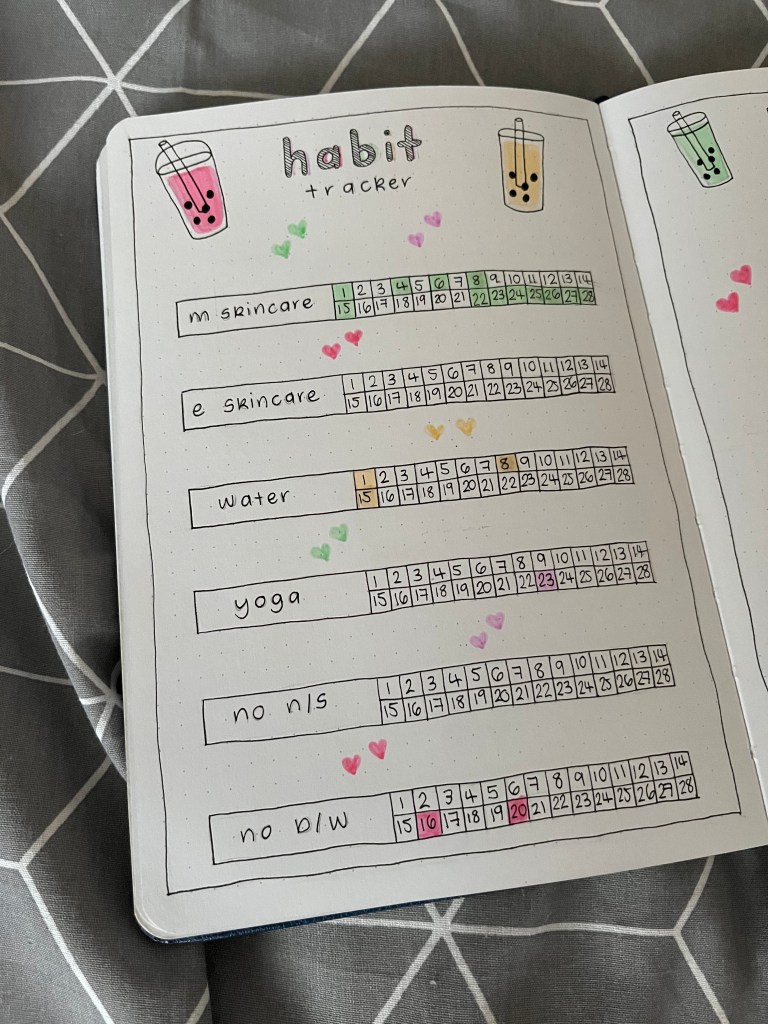 habit
tracker
m skincare 1 2 3 4 5 6 7 8 9 10 11 12 13 14
15 16 17 18 19 20 21 22 23 24 25 26 27 28
e skincare 1 2 3 4 5 6 7 8 9 10 11 12 13 14
15 16 17 18 19 20 21 22 23 24 25 26 27 28
water 1 2 3 4 5 6 7 8 9 10 11 12 13 14
15 16 17 18 19 20 21 22 23 24 25 26 27 28
yoga 1 2 3 4 5 6 7 8 9 10 11 12 13 14
15 16 17 18 19 20 21 22 23 24 25 26 27 28
no n/s 1 2 3 4 5 6 7 8 9 10 11 12 13 14
15 16 17 18 19 20 21 22 23 24 25 26 27 28
no D/W 1 2 3 4 5 6 7 8 9 10 11 12 13 14
15 16 17 18 19 20 21 22 23 24 25 26 27 28